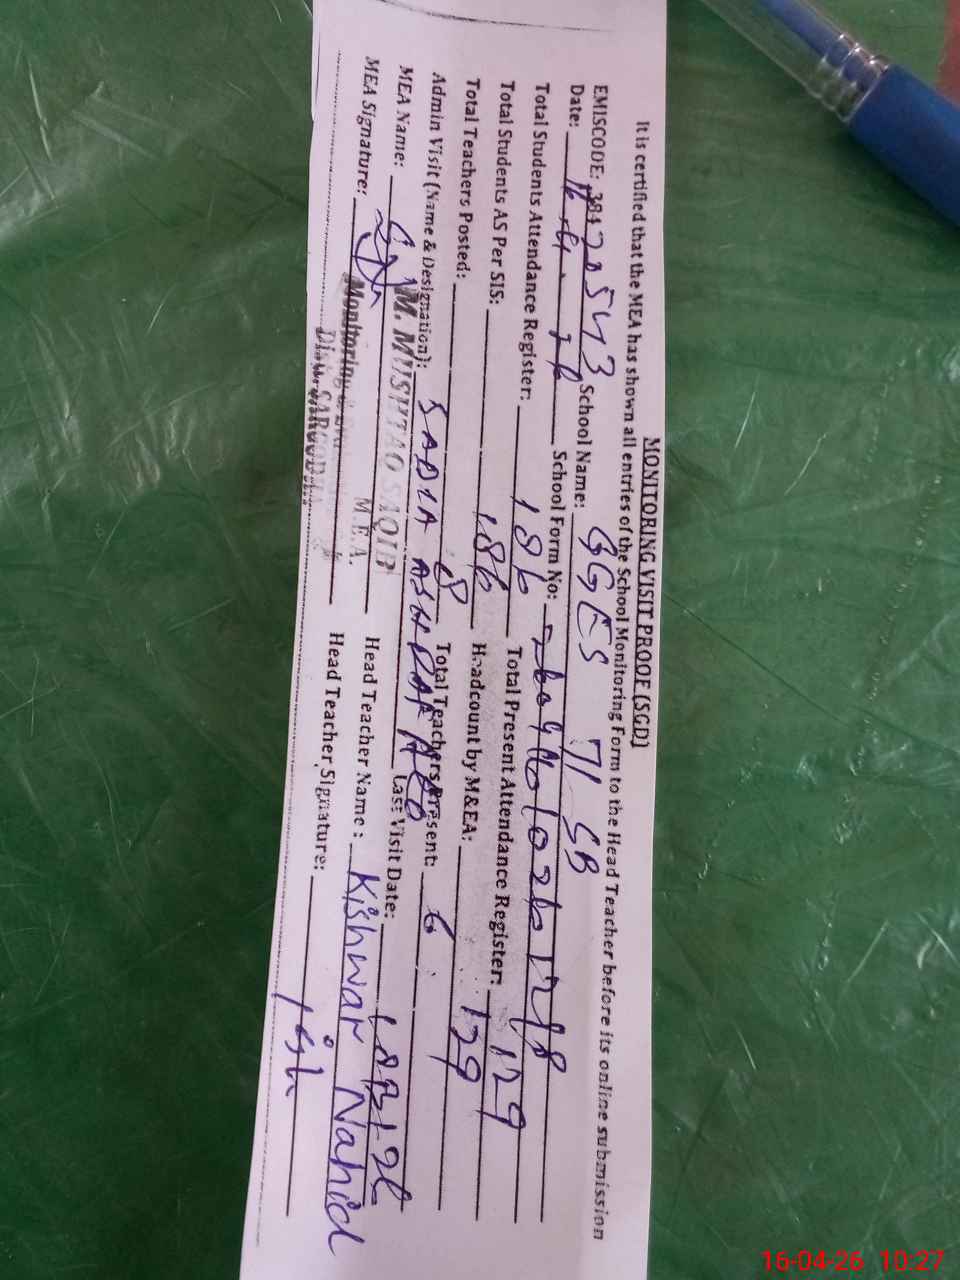 MONITORING VISIT PROOF (SGD)
It is certified that the MEA has shown all entries of the School Monitoring Form to the Head Teacher before its online submission
EMISCODE: 38420543 School Name: GGES 71 SB
Date: 16.4.26 School Form No:
Total Students Attendance Register: 186 Total Present Attendance Register: 129
Total Students AS Per SIS: 186 Headcount by M&EA: 129
Total Teachers Posted: 8 Total Teachers Present: 6
Admin Visit (Name & Designation): SADIA ASHRAF AEO Last Visit Date:
MEA Name: M. MUSHTAQ SAQIB Head Teacher Name: Kishwar Nahid
M.E.A.
MEA Signature: Head Teacher Signature:
Monitoring &
Distt. SARGODHA
16-04-26 10:27